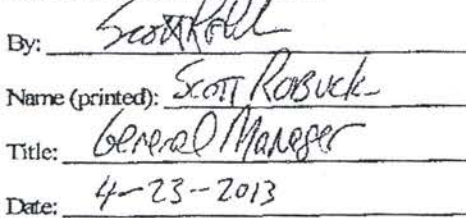 By: Scott
Name (printed): Scott Robuck
Title: General Manager
Date: 4-23-2013